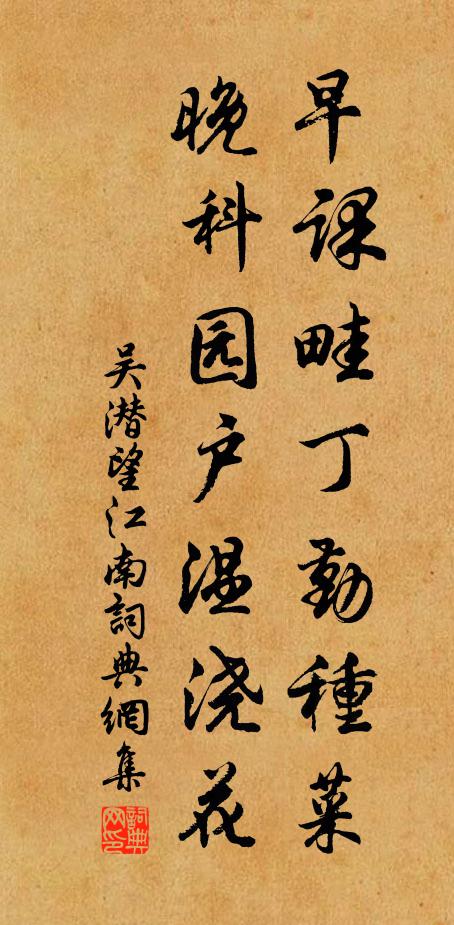 早课畦丁勤種菜
晚科园户温浇花
吴潜望江南詞典網集
詞典网印